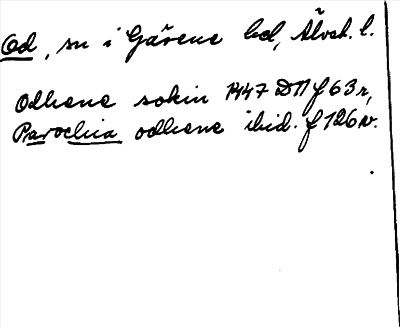 Od, sn i Gäsene hd, Älvsb. l.
Odhene sokin 1447 DN f 63 r,
Parochia odhene ibid. f 126 v.